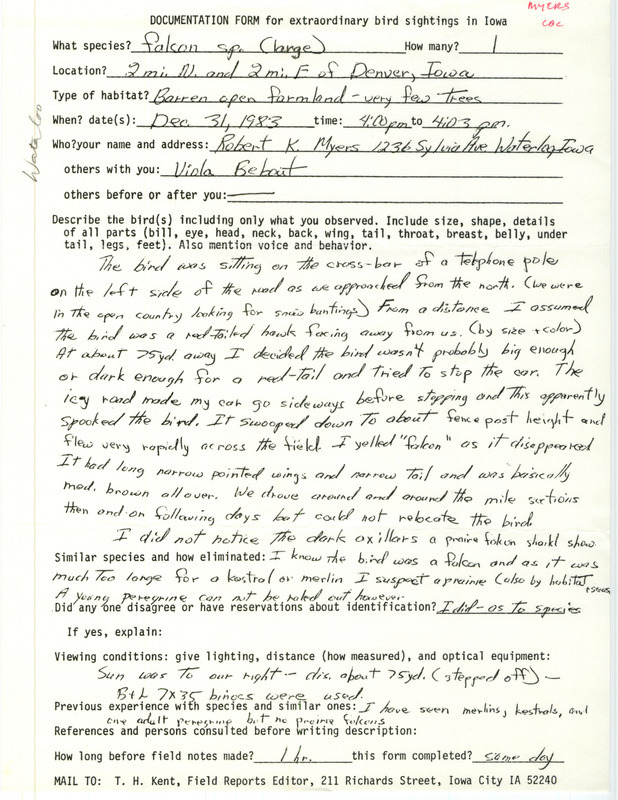 MYERS
CBC
DOCUMENTATION FORM for extraordinary bird sightings in Iowa
What species? falcon sp. (large) How many? 1
Location? 2 mi. N. and 2 mi. E of Denver, Iowa
Type of habitat? Barren open farmland - very few trees
When? date(s): Dec. 31, 1983 time: 4:00 pm to 4:03 pm.
Who? your name and address: Robert K. Myers 1236 Sylvia Ave Waterloo, Iowa
Waterloo
others with you: Viola Bebout
others before or after you:
Describe the bird(s) including only what you observed. Include size, shape, details
of all parts (bill, eye, head, neck, back, wing, tail, throat, breast, belly, under
tail, legs, feet). Also mention voice and behavior.
The bird was sitting on the cross-bar of a telephone pole
on the left side of the road as we approached from the north. (we were
in the open country looking for snow buntings) From a distance I assumed
the bird was a red-tailed hawk facing away from us. (by size + color)
At about 75yd. away I decided the bird wasn't probably big enough
or dark enough for a red-tail and tried to stop the car. The
icy road made my car go sideways before stopping and this apparently
spooked the bird. It swooped down to about fence post height and
flew very rapidly across the field. I yelled "falcon" as it disappeared
It had long narrow pointed wings and narrow tail and was basically
med. brown all over. We drove around and around the mile sections
then and on following days but could not relocate the bird.
I did not notice the dark axillars a prairie falcon should show.
Similar species and how eliminated: I know the bird was a falcon and as it was
much too large for a kestral or merlin I suspect a prairie (also by habitat
A young peregrine can not be ruled out however.
Did any one disagree or have reservations about identification? I did - as to species
If yes, explain:
Viewing conditions: give lighting, distance (how measured), and optical equipment:
Sun was to our right - dis. about 75yd. (stepped off) -
B+L 7X35 binocs were used.
Previous experience with species and similar ones: I have seen merlins, kestrals, and
one adult peregrine but no prairie falcons
References and persons consulted before writing description:
How long before field notes made? 1 hr. this form completed? same day
MAIL TO: T. H. Kent, Field Reports Editor, 211 Richards Street, Iowa City IA 52240